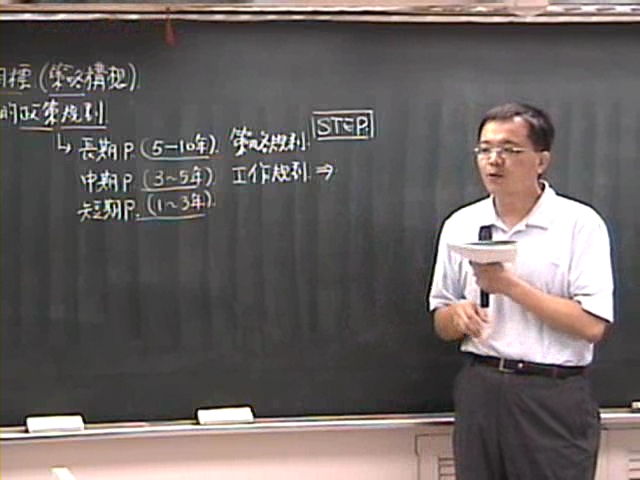 目標(策略構想)
的政策規劃
↳ 長期P.(5-10年). 策略規劃. STEP.
中期P.(3~5年) 工作規劃. ⇒
短期P.(1~3年).